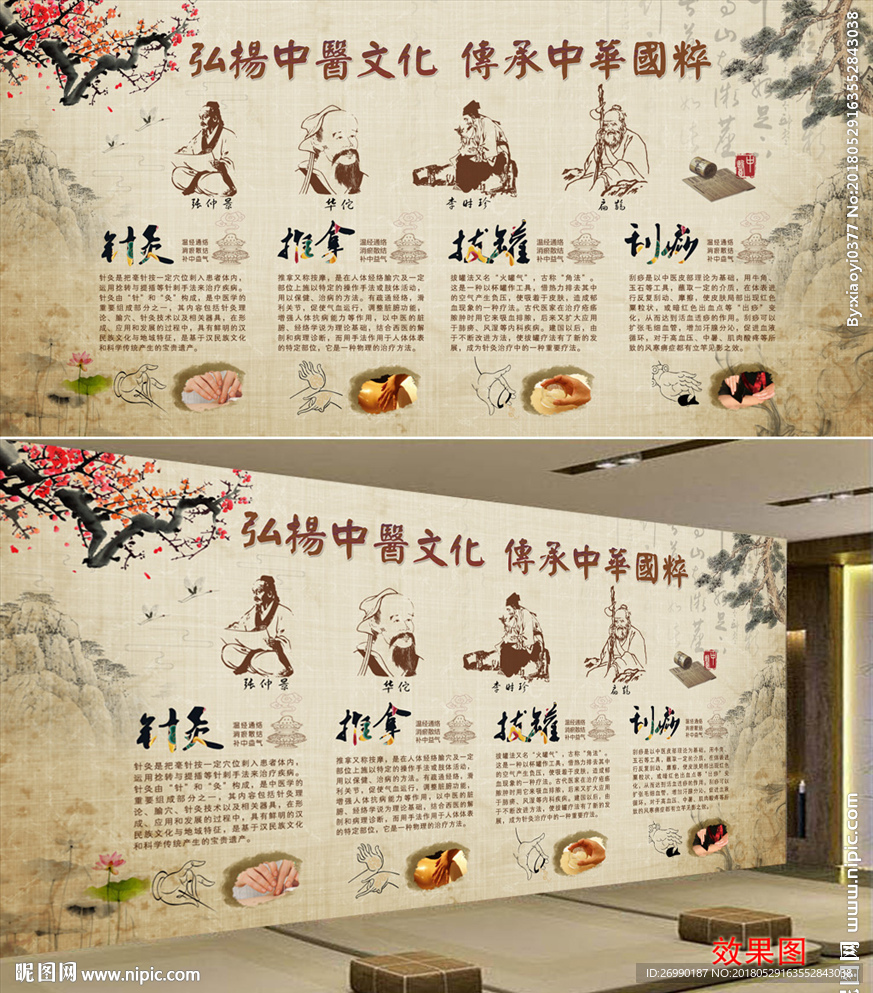 弘揚中醫文化 傳承中華國粹
By:xiaoyi0377 No:20180529163552843038
中醫
张仲景
华佗
李时珍
扁鹊
针灸
温经通络
消瘀散结
补中益气
针灸是把毫针按一定穴位刺入患者体内，
运用捻转与提插等针刺手法来治疗疾病。
针灸由“针”和“灸”构成，是中医学的
重要组成部分之一，其内容包括针灸理
论、腧穴、针灸技术以及相关器具，在形
成、应用和发展的过程中，具有鲜明的汉
民族文化与地域特征，是基于汉民族文化
和科学传统产生的宝贵遗产。
推拿
温经通络
消瘀散结
补中益气
推拿又称按摩，是在人体经络腧穴及一定
部位上施以特定的操作手法或肢体活动，
用以保健、治病的方法。有疏通经络，滑
利关节，促使气血运行，调整脏腑功能，
增强人体抗病能力等作用，以中医的脏
腑、经络学说为理论基础，结合西医的解
剖和病理诊断，而用手法作用于人体体表
的特定部位，它是一种物理的治疗方法。
拔罐
温经通络
消瘀散结
补中益气
拔罐法又名“火罐气”，古称“角法”。
这是一种以杯罐作工具，借热力排去其中
的空气产生负压，使吸着于皮肤，造成郁
血现象的一种疗法。古代医家在治疗疮疡
脓肿时用它来吸血排脓，后来又扩大应用
于肺痨、风湿等内科疾病。建国以后，由
于不断改进方法，使拔罐疗法有了新的发
展，成为针灸治疗中的一种重要疗法。
刮痧
温经通络
消瘀散结
补中益气
刮痧是以中医皮部理论为基础，用牛角、
玉石等工具，蘸取一定的介质，在体表进
行反复刮动、摩擦，使皮肤局部出现红色
粟粒状，或暗红色出血点等“出痧”变
化，从而达到活血透痧的作用。刮痧可以
扩张毛细血管，增加汗腺分泌，促进血液
循环，对于高血压、中暑、肌肉酸疼等所
致的风寒痹症都有立竿见影之效。
弘揚中醫文化 傳承中華國粹
中醫
张仲景
华佗
李时珍
扁鹊
针灸
温经通络
消瘀散结
补中益气
针灸是把毫针按一定穴位刺入患者体内，
运用捻转与提插等针刺手法来治疗疾病。
针灸由“针”和“灸”构成，是中医学的
重要组成部分之一，其内容包括针灸理
论、腧穴、针灸技术以及相关器具，在形
成、应用和发展的过程中，具有鲜明的汉
民族文化与地域特征，是基于汉民族文化
和科学传统产生的宝贵遗产。
推拿
温经通络
消瘀散结
补中益气
推拿又称按摩，是在人体经络腧穴及一定
部位上施以特定的操作手法或肢体活动，
用以保健、治病的方法。有疏通经络，滑
利关节，促使气血运行，调整脏腑功能，
增强人体抗病能力等作用，以中医的脏
腑、经络学说为理论基础，结合西医的解
剖和病理诊断，而用手法作用于人体体表
的特定部位，它是一种物理的治疗方法。
拔罐
温经通络
消瘀散结
补中益气
拔罐法又名“火罐气”，古称“角法”。
这是一种以杯罐作工具，借热力排去其中
的空气产生负压，使吸着于皮肤，造成郁
血现象的一种疗法。古代医家在治疗疮疡
脓肿时用它来吸血排脓，后来又扩大应用
于肺痨、风湿等内科疾病。建国以后，由
于不断改进方法，使拔罐疗法有了新的发
展，成为针灸治疗中的一种重要疗法。
刮痧
温经通络
消瘀散结
补中益气
刮痧是以中医皮部理论为基础，用牛角、
玉石等工具，蘸取一定的介质，在体表进
行反复刮动、摩擦，使皮肤局部出现红色
粟粒状，或暗红色出血点等“出痧”变
化，从而达到活血透痧的作用。刮痧可以
扩张毛细血管，增加汗腺分泌，促进血液
循环，对于高血压、中暑、肌肉酸疼等所
致的风寒痹症都有立竿见影之效。
效果图
昵图网 www.nipic.com
ID:26990187 NO:20180529163552843038
昵图网 www.nipic.com